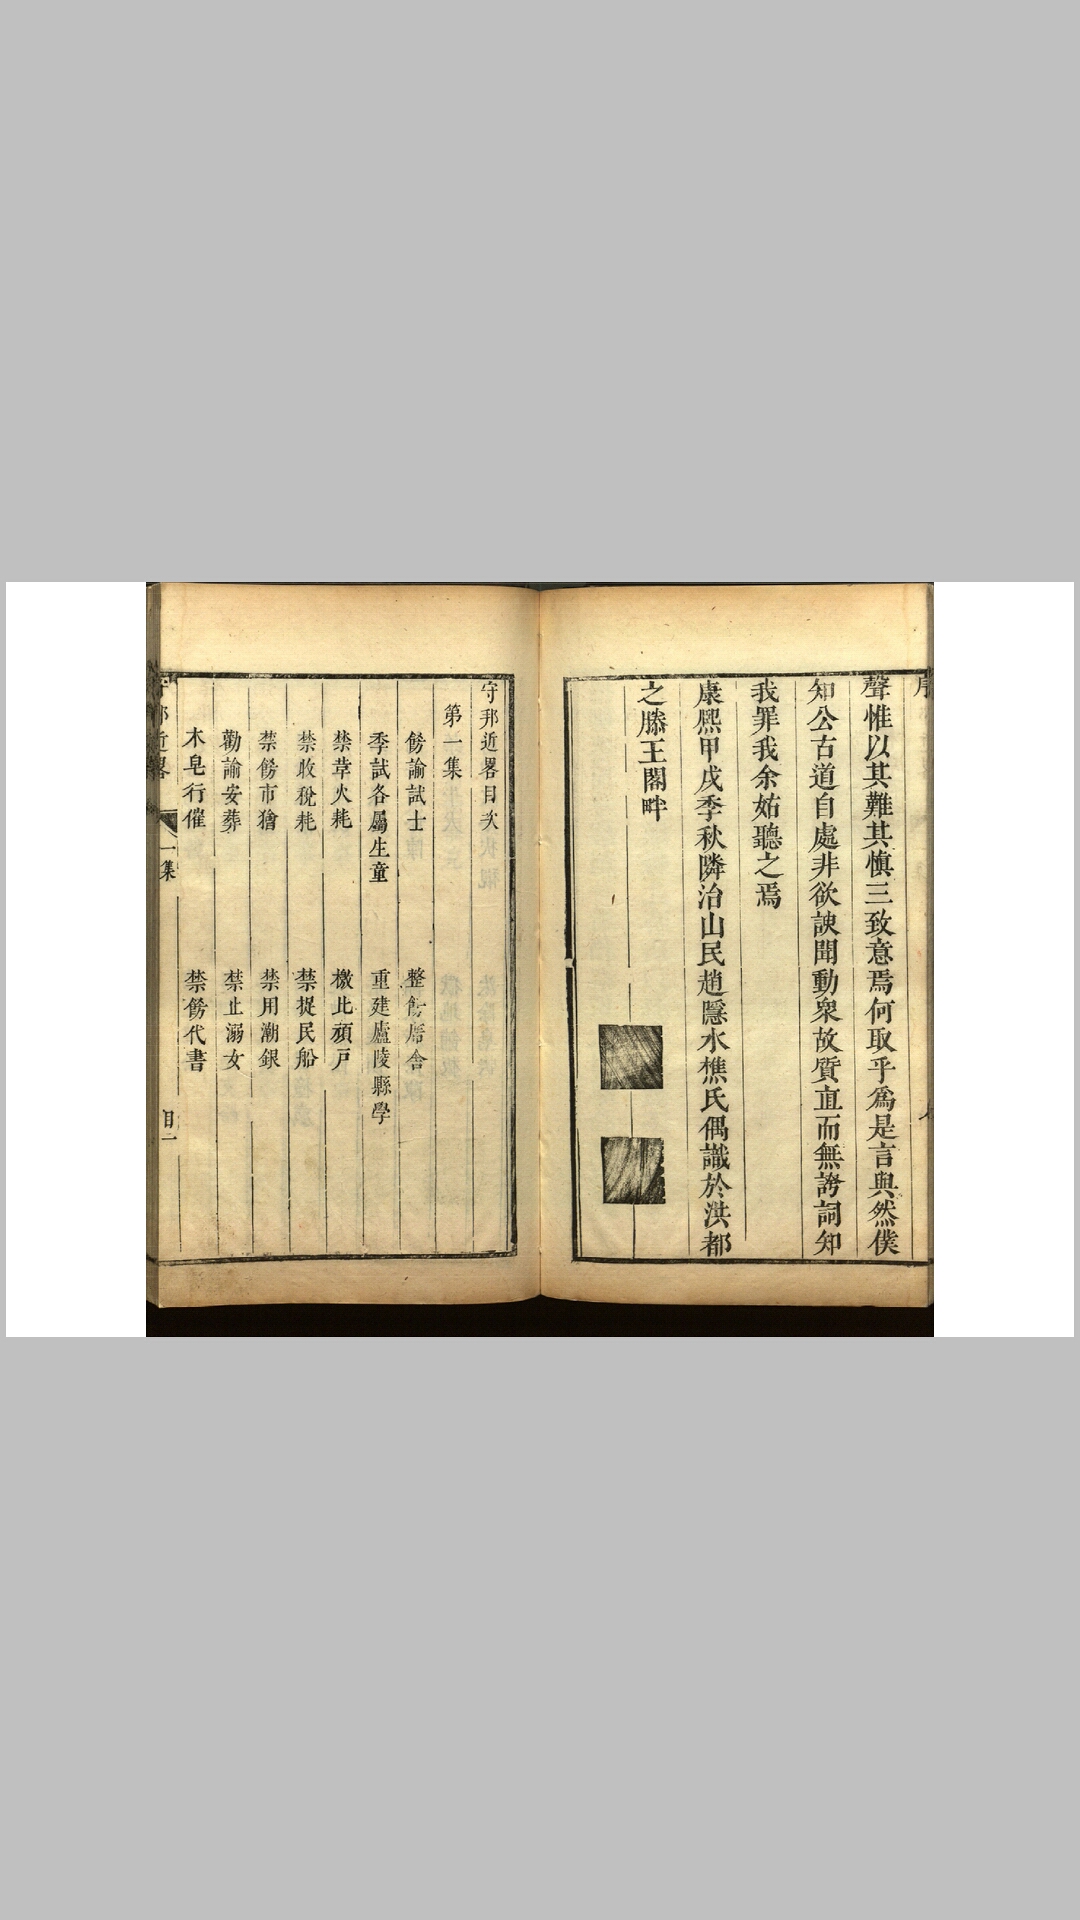 聲惟以其難其慎三致意焉何取乎爲是言與然僕
知公古道自處非欲諛聞動衆故質直而無誇詞知
我罪我余姑聽之焉
康熙甲戌季秋隣治山民趙隱水樵氏偶識於洪都
之滕王閣畔
守邦近畧目次
第一集
飭諭試士
整飭號舍
季試各屬生童
重建廬陵縣學
禁革火耗
檄比頑戸
禁收稅耗
禁捉民船
禁飭市獪
禁用潮銀
勸諭安葬
禁止溺女
木皂行催
禁飭代書
守邦近畧
一集
目二